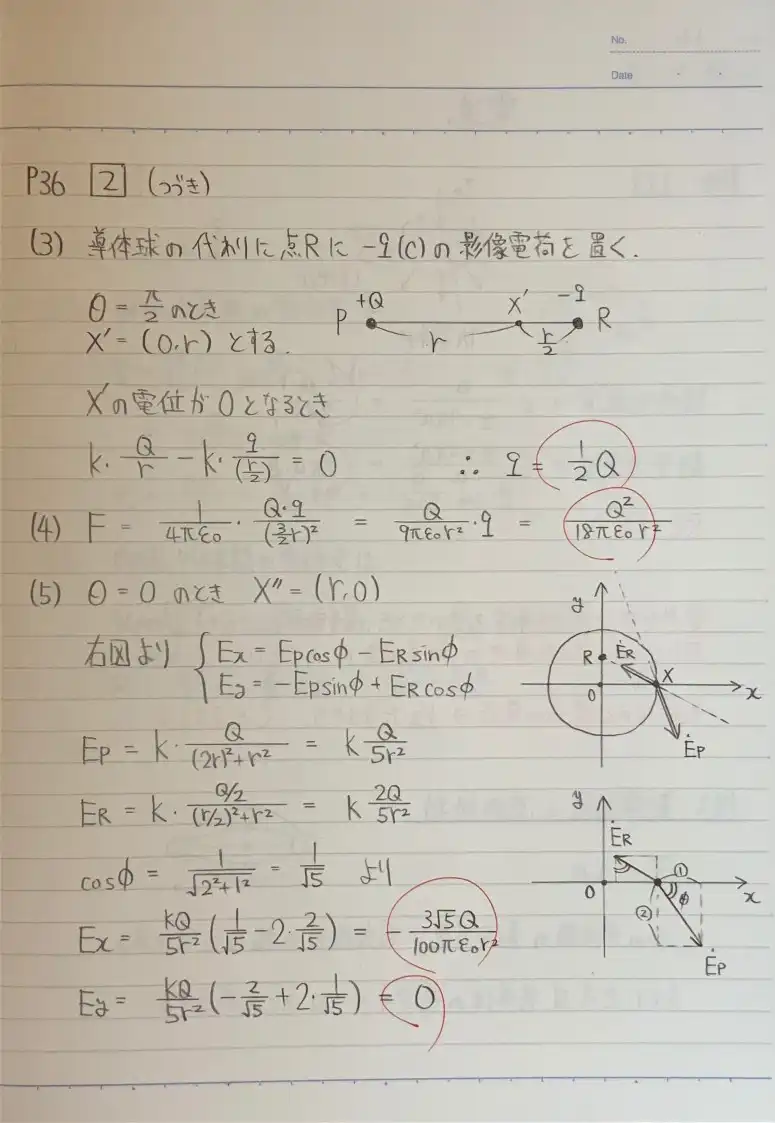 No.
Date
P36 [2] (つづき)
(3) 導体球の代わりに点Rに -q(C)の影像電荷を置く.
θ = π/2 のとき
X′ = (0, r) とする.
P +Q r X′ r/2 -q R
X′の電位が0となるとき
k・Q/r - k・q/(r/2) = 0 ∴ q = 1/2 Q
(4) F = 1/4πε₀ ・ Q・q/(3/2 r)² = Q/9πε₀r² ・q = Q²/18πε₀r²
(5) θ = 0 のとき X″ = (r, 0)
右図より { Ex = Ep cosφ - ER sinφ
Ey = -Ep sinφ + ER cosφ
y R ĖR X O x Ėp
Ep = k・Q/((2r)²+r²) = k Q/5r²
ER = k・(Q/2)/((r/2)²+r²) = k 2Q/5r²
y ĖR ① O φ x ② Ėp
cosφ = 1/√(2²+1²) = 1/√5 より
Ex = kQ/5r² (1/√5 - 2・2/√5) = - 3√5Q/100πε₀r²
Ey = kQ/5r² (-2/√5 + 2・1/√5) = 0